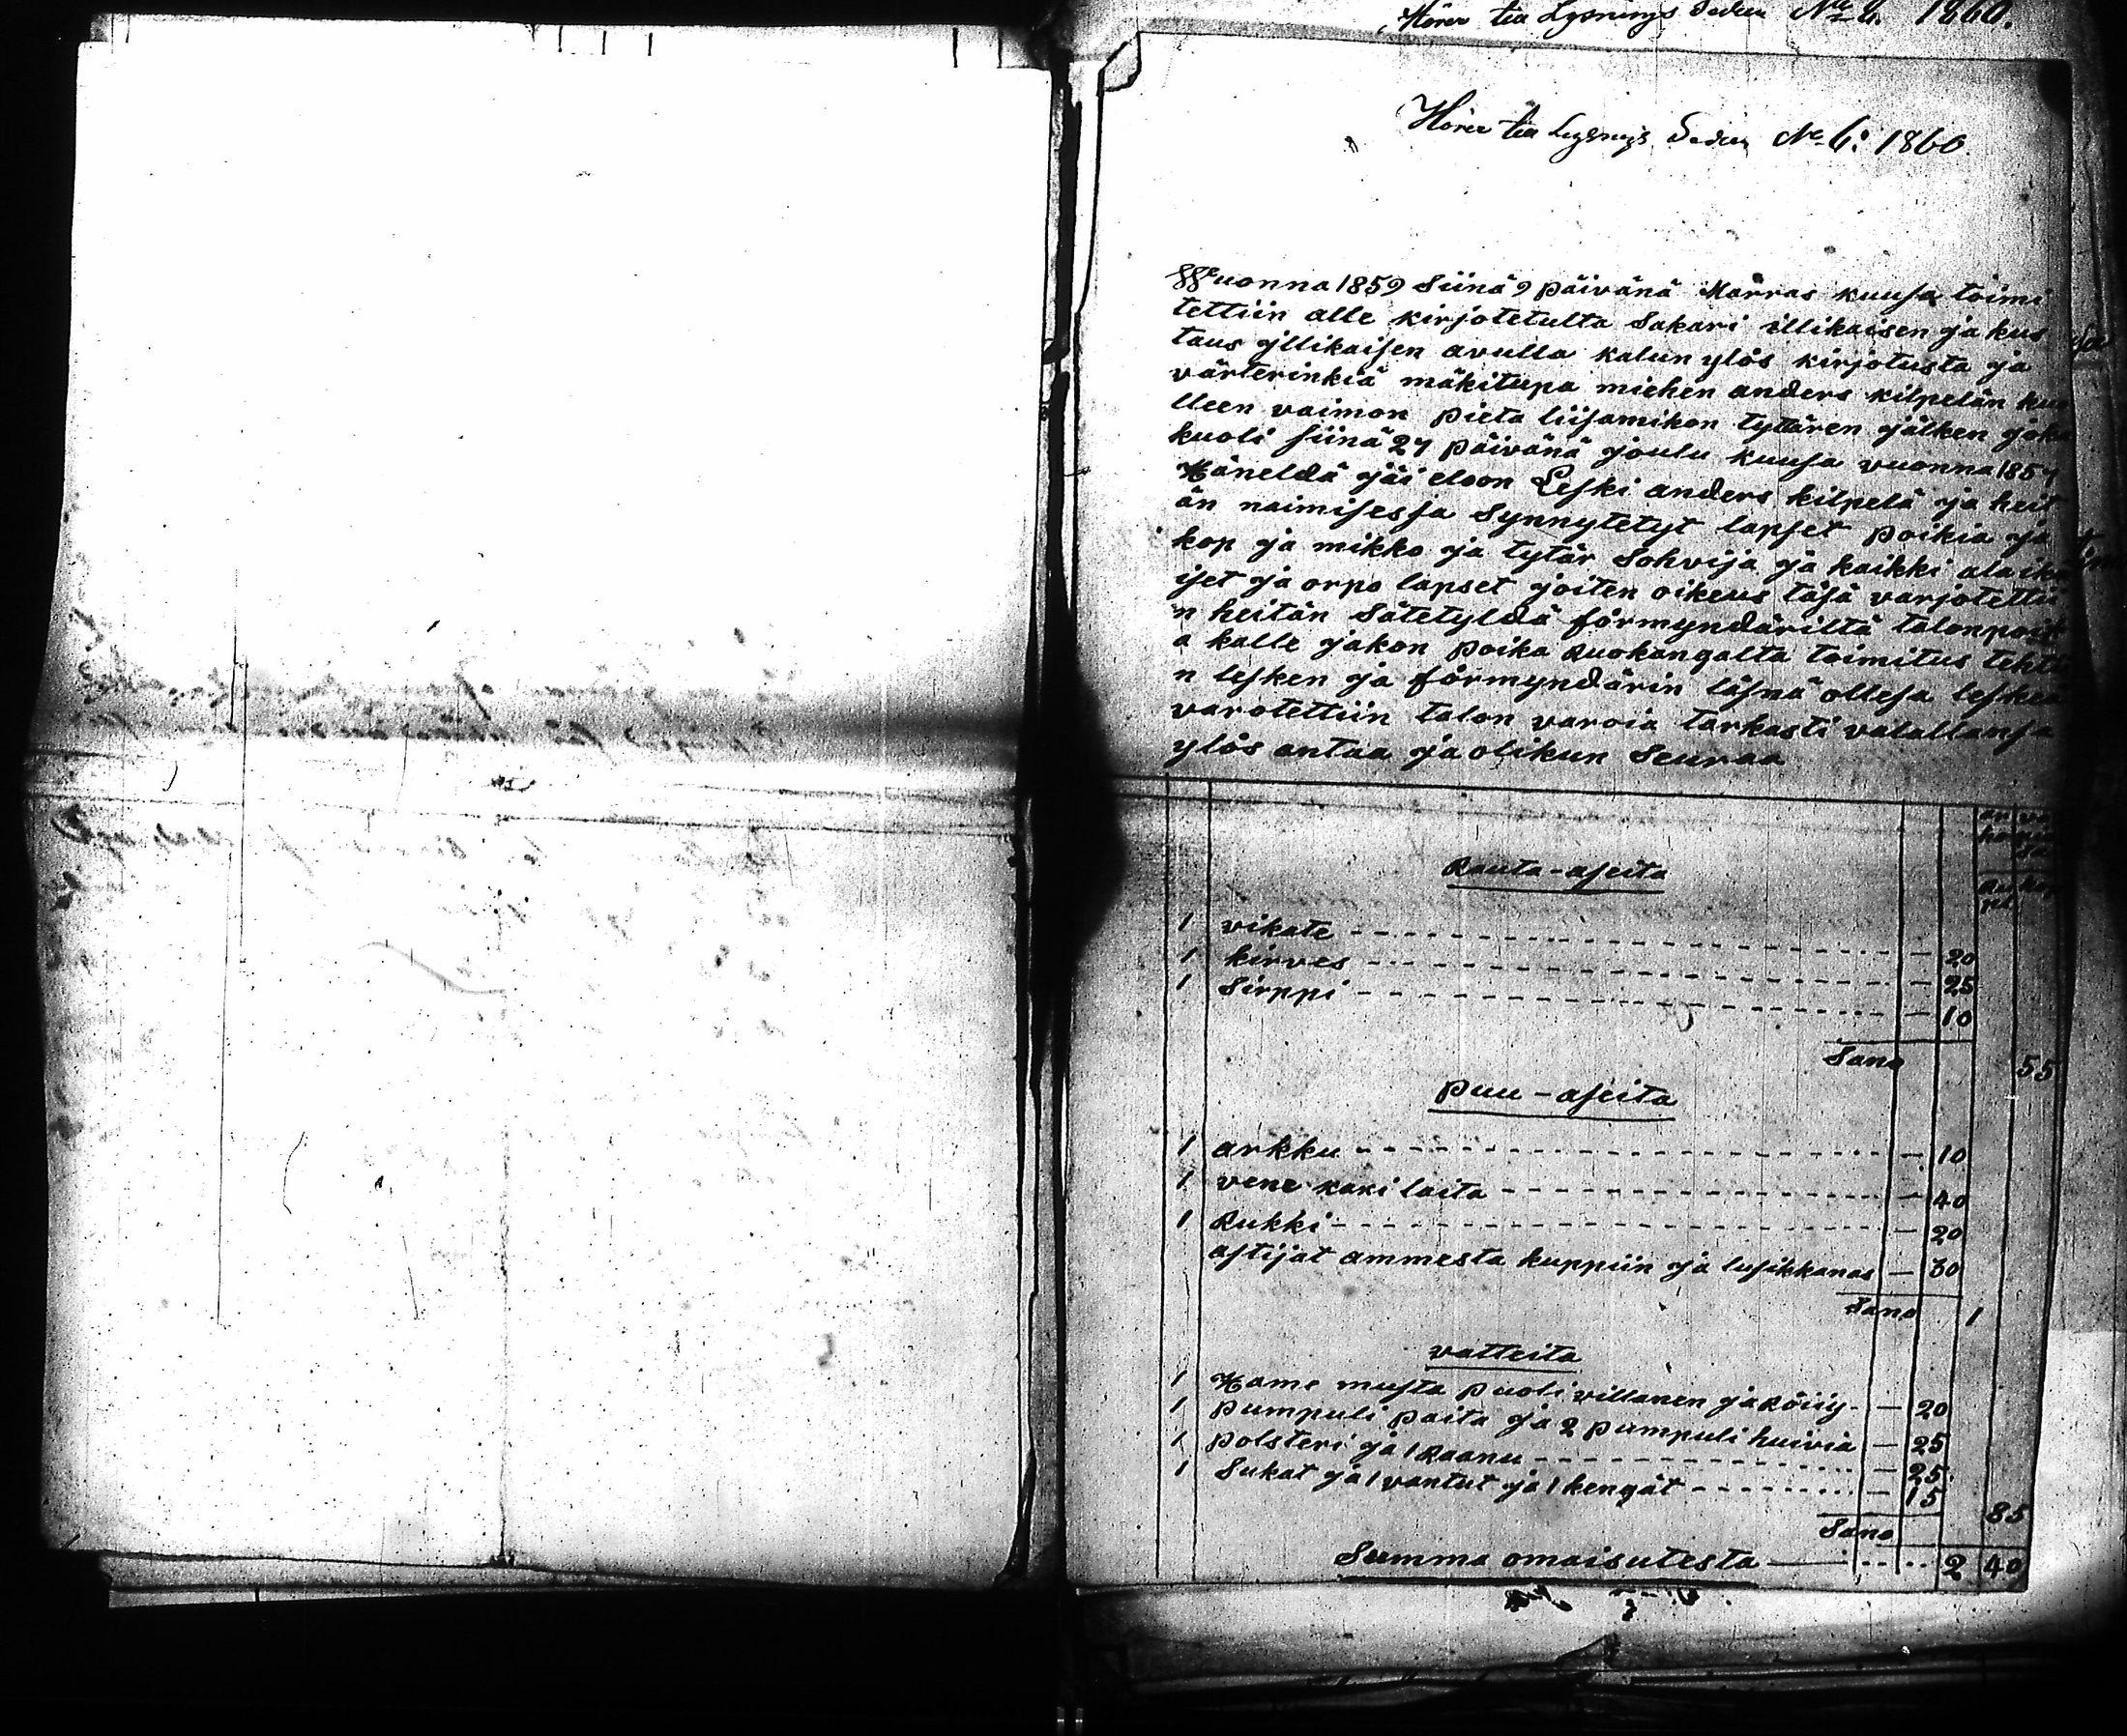 1860.
No 6: 1860.
Wuonna 1859 Siinä 9 päivänä Marras kuusa toimi
tettiin alle kirjotetulta Sakari illikaisen ja kus
taus yllikaisen avulla kalun ylös kirjotusta ja
värterinkiä mäkitupa miehen anders kilpelän kuo
lleen vaimon pieta liisa mikon tyttären jälken joka
kuoli siinä 27 päivänä joulu kuusa vuonna 1857
Häneldä jäi eloon Leski anders kilpelä ja heit
än naimisessa Synnytetyt lapset poikia ja
kop ja mikko ja tytär Sohvija ja kaikki alaikä
iset ja orpo lapset joiten oikeus täsä varjotettii
n heitän Sätetyldä förmyndäriltä talonpoik
a kalle jakon poika Ruokangalta toimitus tehtii
n lesken ja förmyndärin läsnä ollesa leskeä
varotettiin talon varoia tarkasti valallansa
ylös antaa ja oli kun Seuraa
Rauta-aseita
1 vikate - 20
1 kirves - 25
1 Sirppi - 10
Sano 55
puu-aseita
1 arkku - 10
1 vene kaxi laita - 40
1 Rukki - 20
astijat ammesta kuppiin ja lusikkanas - 30
Sano 1
vatteita
1 Hame musta puoli villanen ja röiiy - 20
1 pumpuli paita ja 2 pumpuli huivia - 25
1 polsteri ja 1 Raanu - 25
1 Sukat ja 1 vantut ja 1 kengät - 15
Sano 85
Summa omaisutesta 2 40